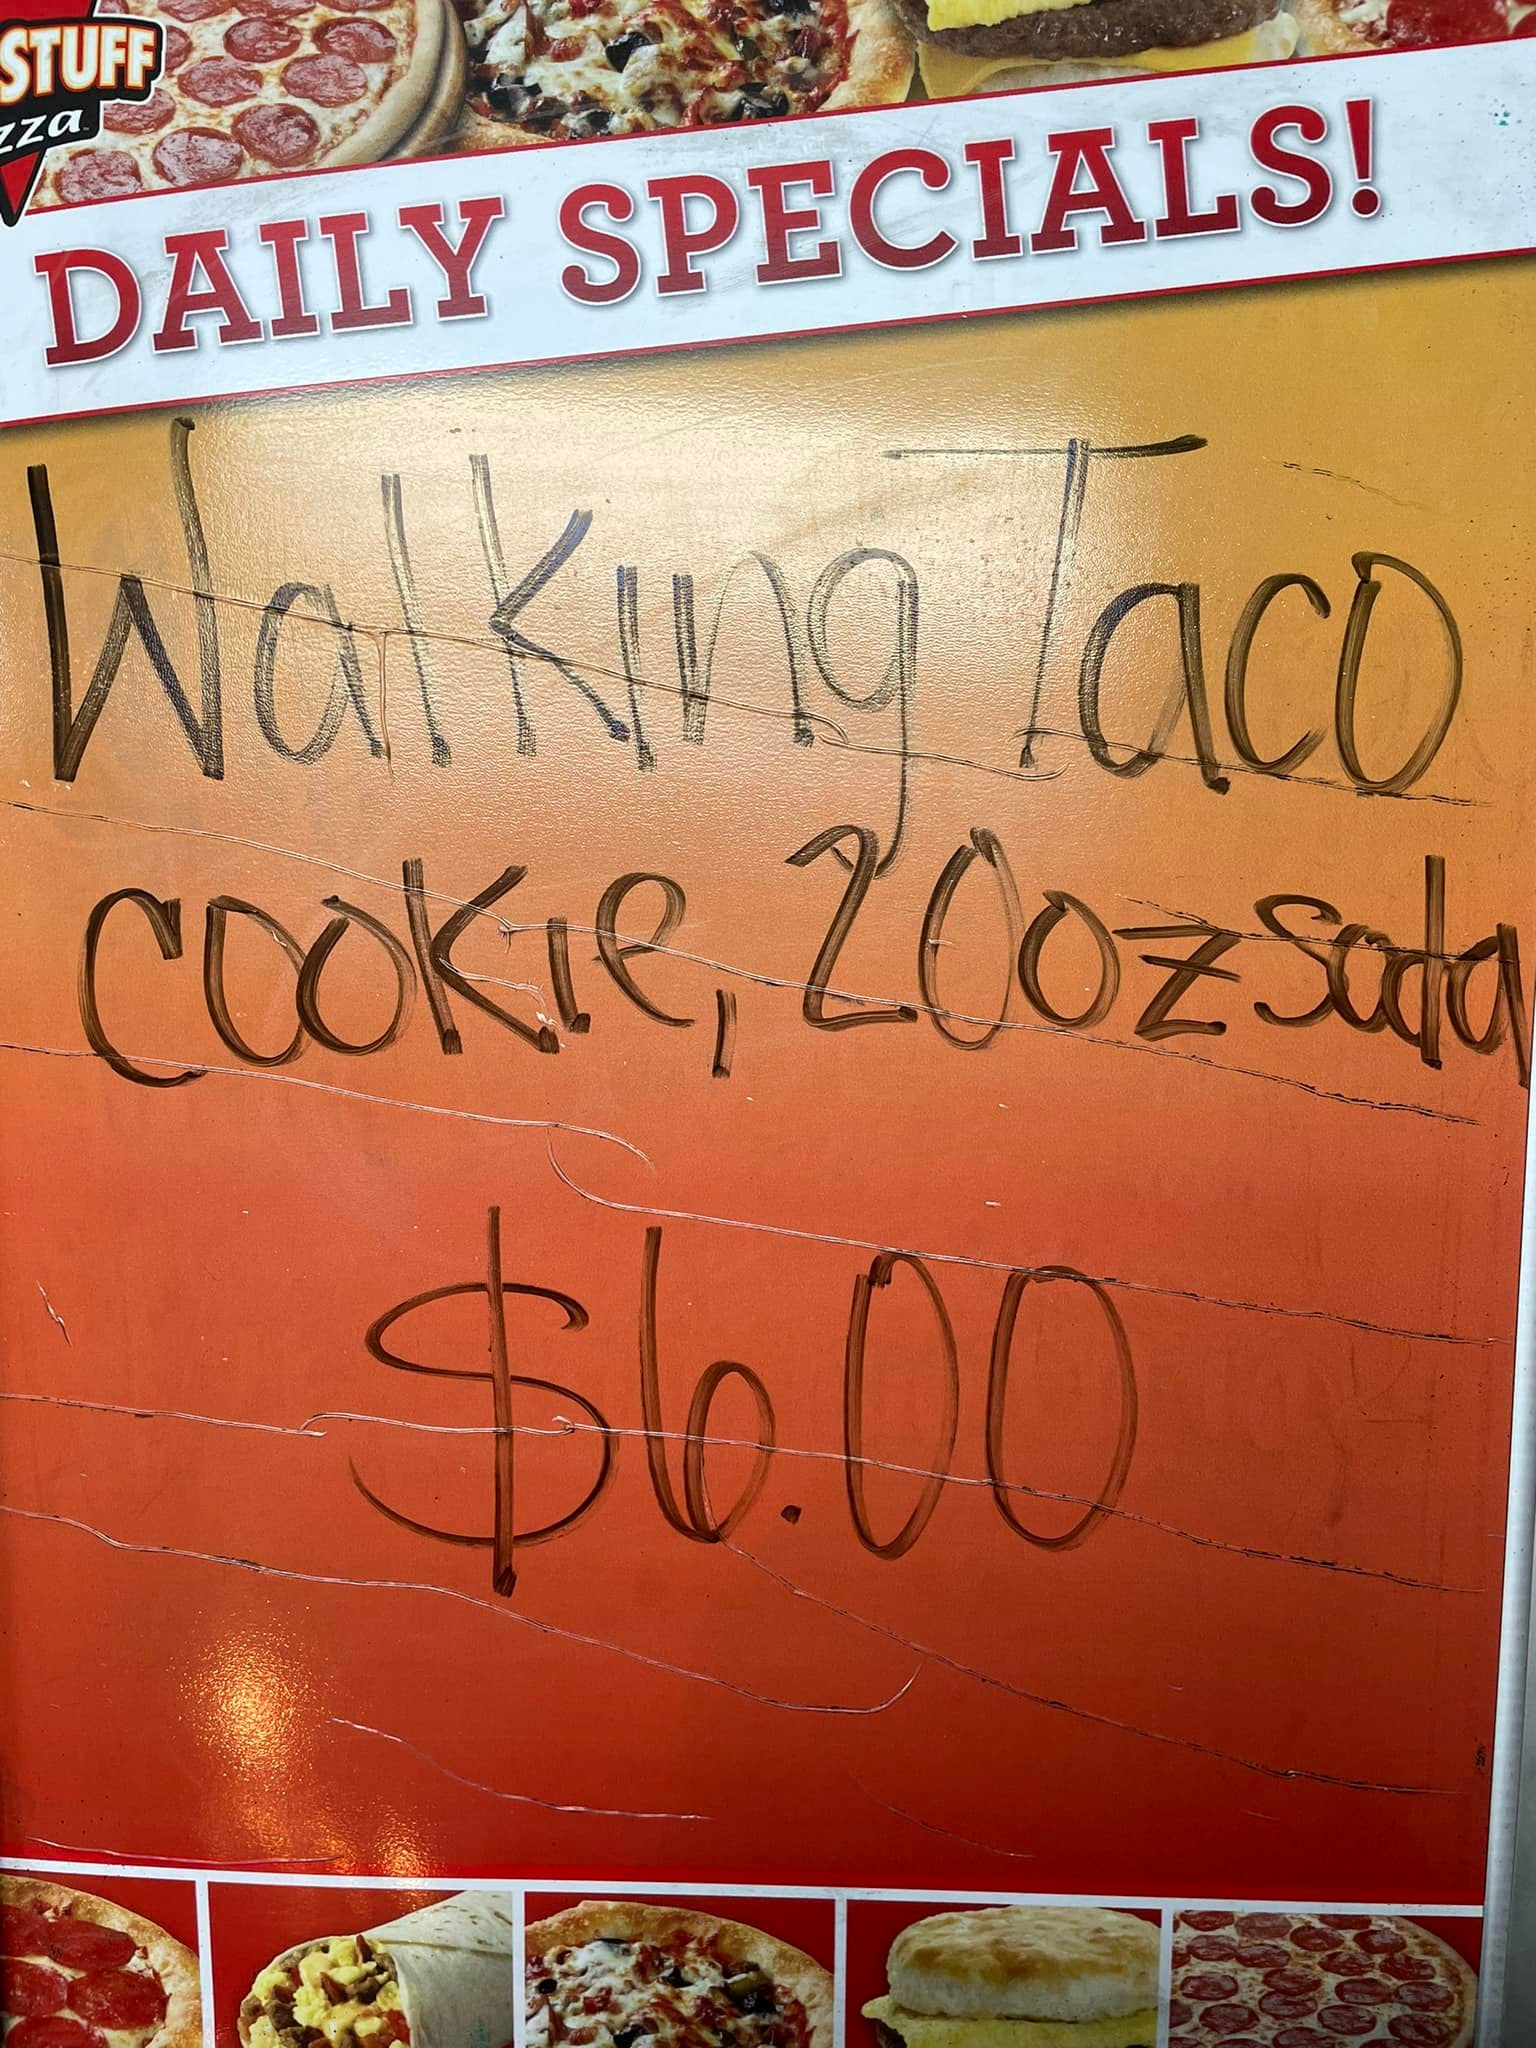 STUFF
DAILY SPECIALS!
Walking Taco
cookie, 20oz soda
$6.00